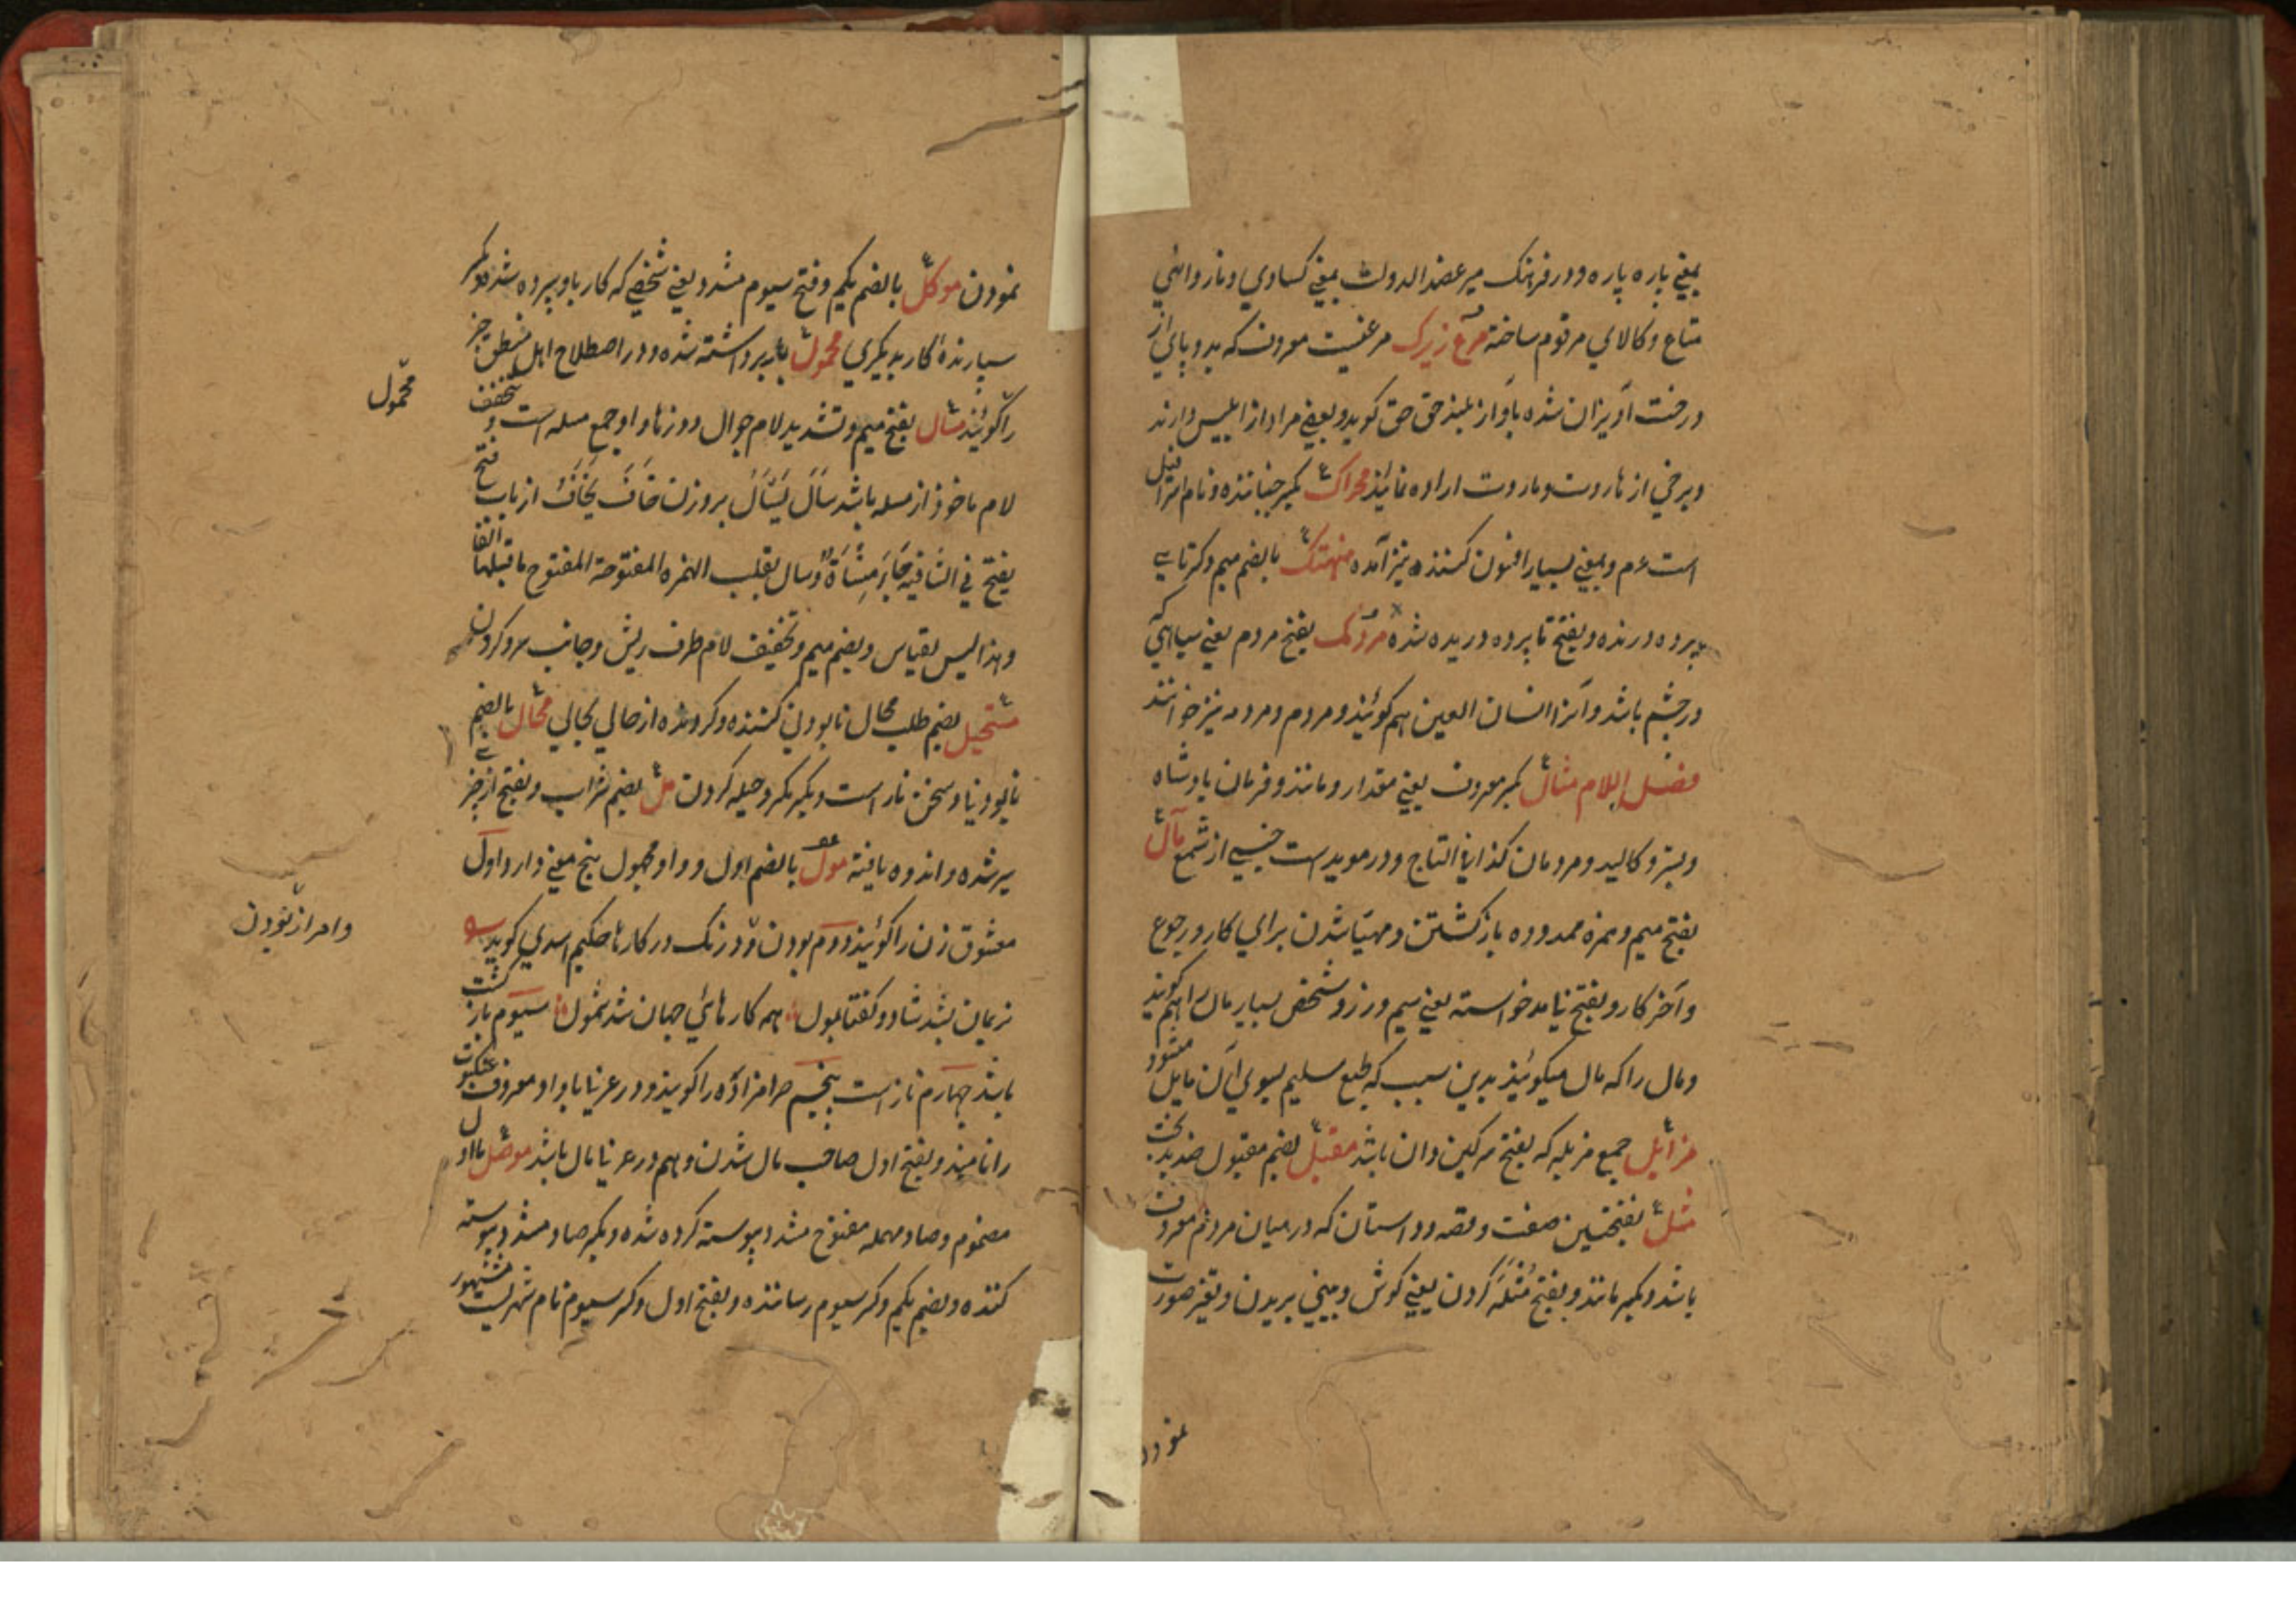 بمعنی پاره پاره و در فرهنک میر عضد الدولت بمعنی کسادی و ناروائی
متاع و کالای مرقوم ساخته مرغ زیرک مرغیست معروف که بدو پای از
درخت آویزان شده بآواز بلند حق حق کوید و بعضی مراد از ابلیس دارند
و برخی از هاروت و ماروت اراده نمایند محراک بکسر جنباننده و نام
است و بمعنی بسیار افسون کننده نیز آمده منهتک بالضم میم و کسر تای
پرده درنده و بفتح تا پرده دریده شده مردمک بفتح مردم یعنی سیاهی که
در چشم باشد و آنرا انسان العین هم کویند و مردم و مردمه نیز خوانند
فصل اللام مثال بکسر معروف یعنی مقدار و مانند و فرمان پادشاه
و بستر و کالبد و مردمان کذا فی التاج و در موید است جنسی از شمع مآل
بفتح میم و همزه ممدوده بازکشتن و مهیا شدن برای کار و رجوع
و آخر کار و بفتح نیامد خواسته یعنی سیم و زر و شخص بسیار مال را هم کویند
و مال را که مال میکویند بدین سبب که طبع سلیم بسوی آن مایل میشود
مزابل جمع مزبله که بفتح سرکین دان باشد مقبل بضم مقبول ضد بدبخت
مثل بفتحتین صفت و قصه و داستان که در میان مردم معروف
باشد و بکسر مانند و بفتح مثله کردن یعنی کوش و بینی بریدن و تغیر صورت
نمودن
نمودن موکل بالضم یکم و فتح سیوم مشدد یعنی شخصی که کار باو سپرده شد و بکسر
سپارندهٔ کار بدیکری محمول بار برداشته شده و در اصطلاح اهل منطق خبر
را کویند مسال بفتح میم و تشدید لام جوال دوزها و او جمع مسله است و بتخفیف
لام ماخوذ از مسله باشد سال یسال بروزن خاف یخاف از باب فتح
یفتح فی الشافیه جاز منساة و سال بقلب الهمزه المفتوحة المفتوح ماقبلها الفا
و هذا لیس بقیاس و بضم میم و تخفیف لام طرف ریش و جانب سر و کردن
مستحیل بضم طلب محال نابودنی کننده و کردنده از حالی بحالی محال بالضم
نابودنی و سخن ناراست و بکسر مکر و حیله کردن مل بضم شراب و بفتح از چیزی
سیر شده و اندوه یافته مول بالضم اول و واو مجهول پنج معنی دارد اول
معشوق زن را کویند دوم بودن و درنک در کارها حکیم اسدی کوید
نریمان بشد شاد و کفتا بمول همه کارهای جهان شد شمول سیوم بازکشت
باشد چهارم ناز است پنجم حرامزاده را کویند و در عربی با واو معروف عنکبوت
را نامند و بفتح اول صاحب مال شدن و هم در عربی مال باشد موصل بالواو
مضموم و صاد مهمله مفتوح مشدد پیوسته کرده شده و بکسر صاد مشدد پیوسته
کننده و بضم یکم و کسر سیوم رساننده و بفتح اول و کسر سیوم نام شهریست مشهور
محمول
و امر از بودن